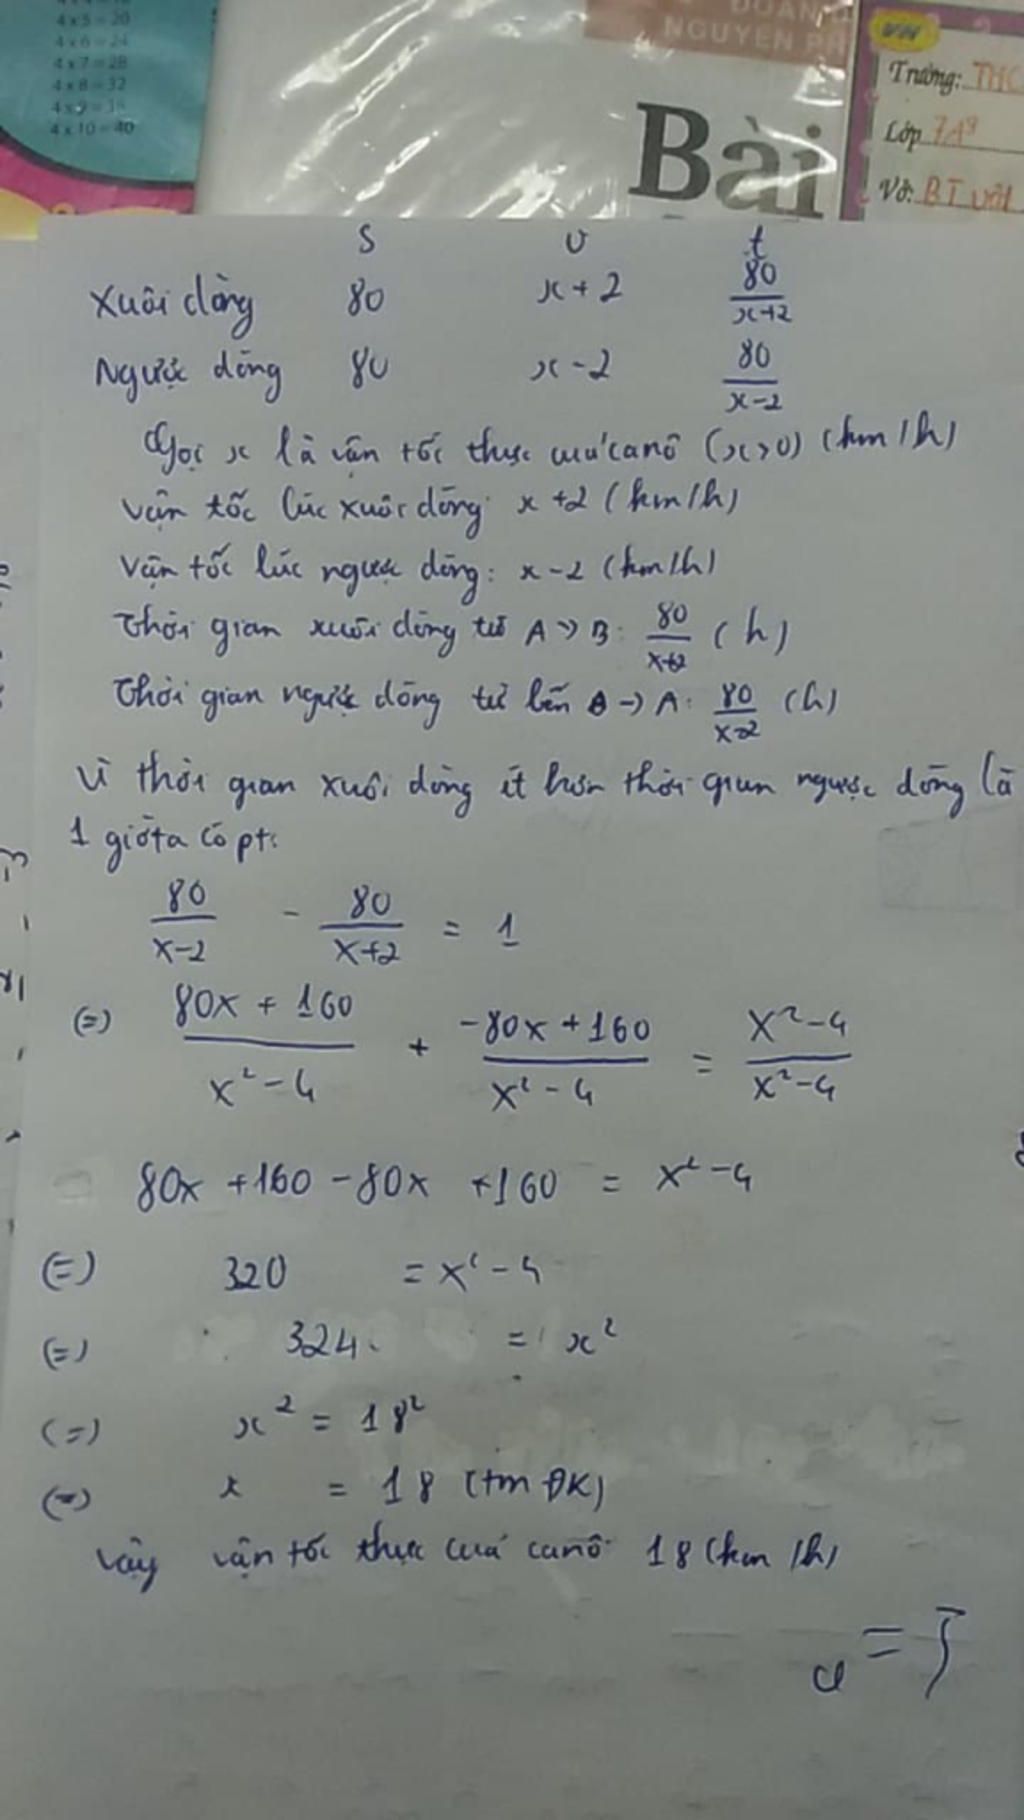 4 x 5 = 20
4 x 6 = 24
4 x 7 = 28
4 x 8 = 32
4 x 9 = 36
4 x 10 = 40
ĐOÀN
NGUYEN PH
Bài
Trường: THC
Lớp 7A9
Vở: BT
S v t
Xuôi dòng 80 x+2 80/(x+2)
Ngược dòng 80 x-2 80/(x-2)
Gọi x là vận tốc thực của canô (x>0) (km/h)
vận tốc lúc xuôi dòng: x+2 (km/h)
Vận tốc lúc ngược dòng: x-2 (km/h)
Thời gian xuôi dòng từ A→B: 80/(x+2) (h)
Thời gian ngược dòng từ bến B→A: 80/(x-2) (h)
Vì thời gian xuôi dòng ít hơn thời gian ngược dòng là
1 giờ ta có pt:
80/(x-2) - 80/(x+2) = 1
(=) (80x + 160)/(x²-4) + (-80x+160)/(x²-4) = (x²-4)/(x²-4)
80x +160 -80x +160 = x²-4
(=) 320 = x²-4
(=) 324 = x²
(=) x² = 18²
(=) x = 18 (tm ĐK)
vậy vận tốc thực của canô 18 (km/h)